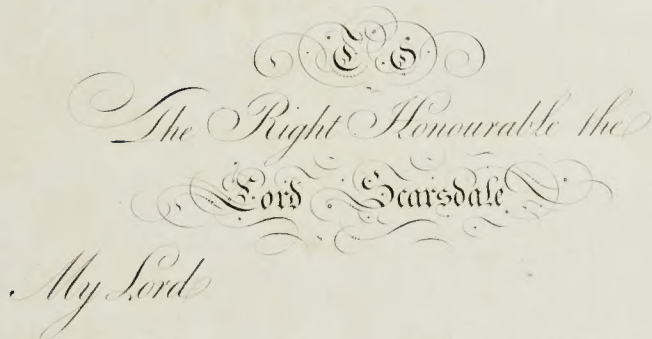 To
The Right Honourable the
Lord Scarsdale
My Lord